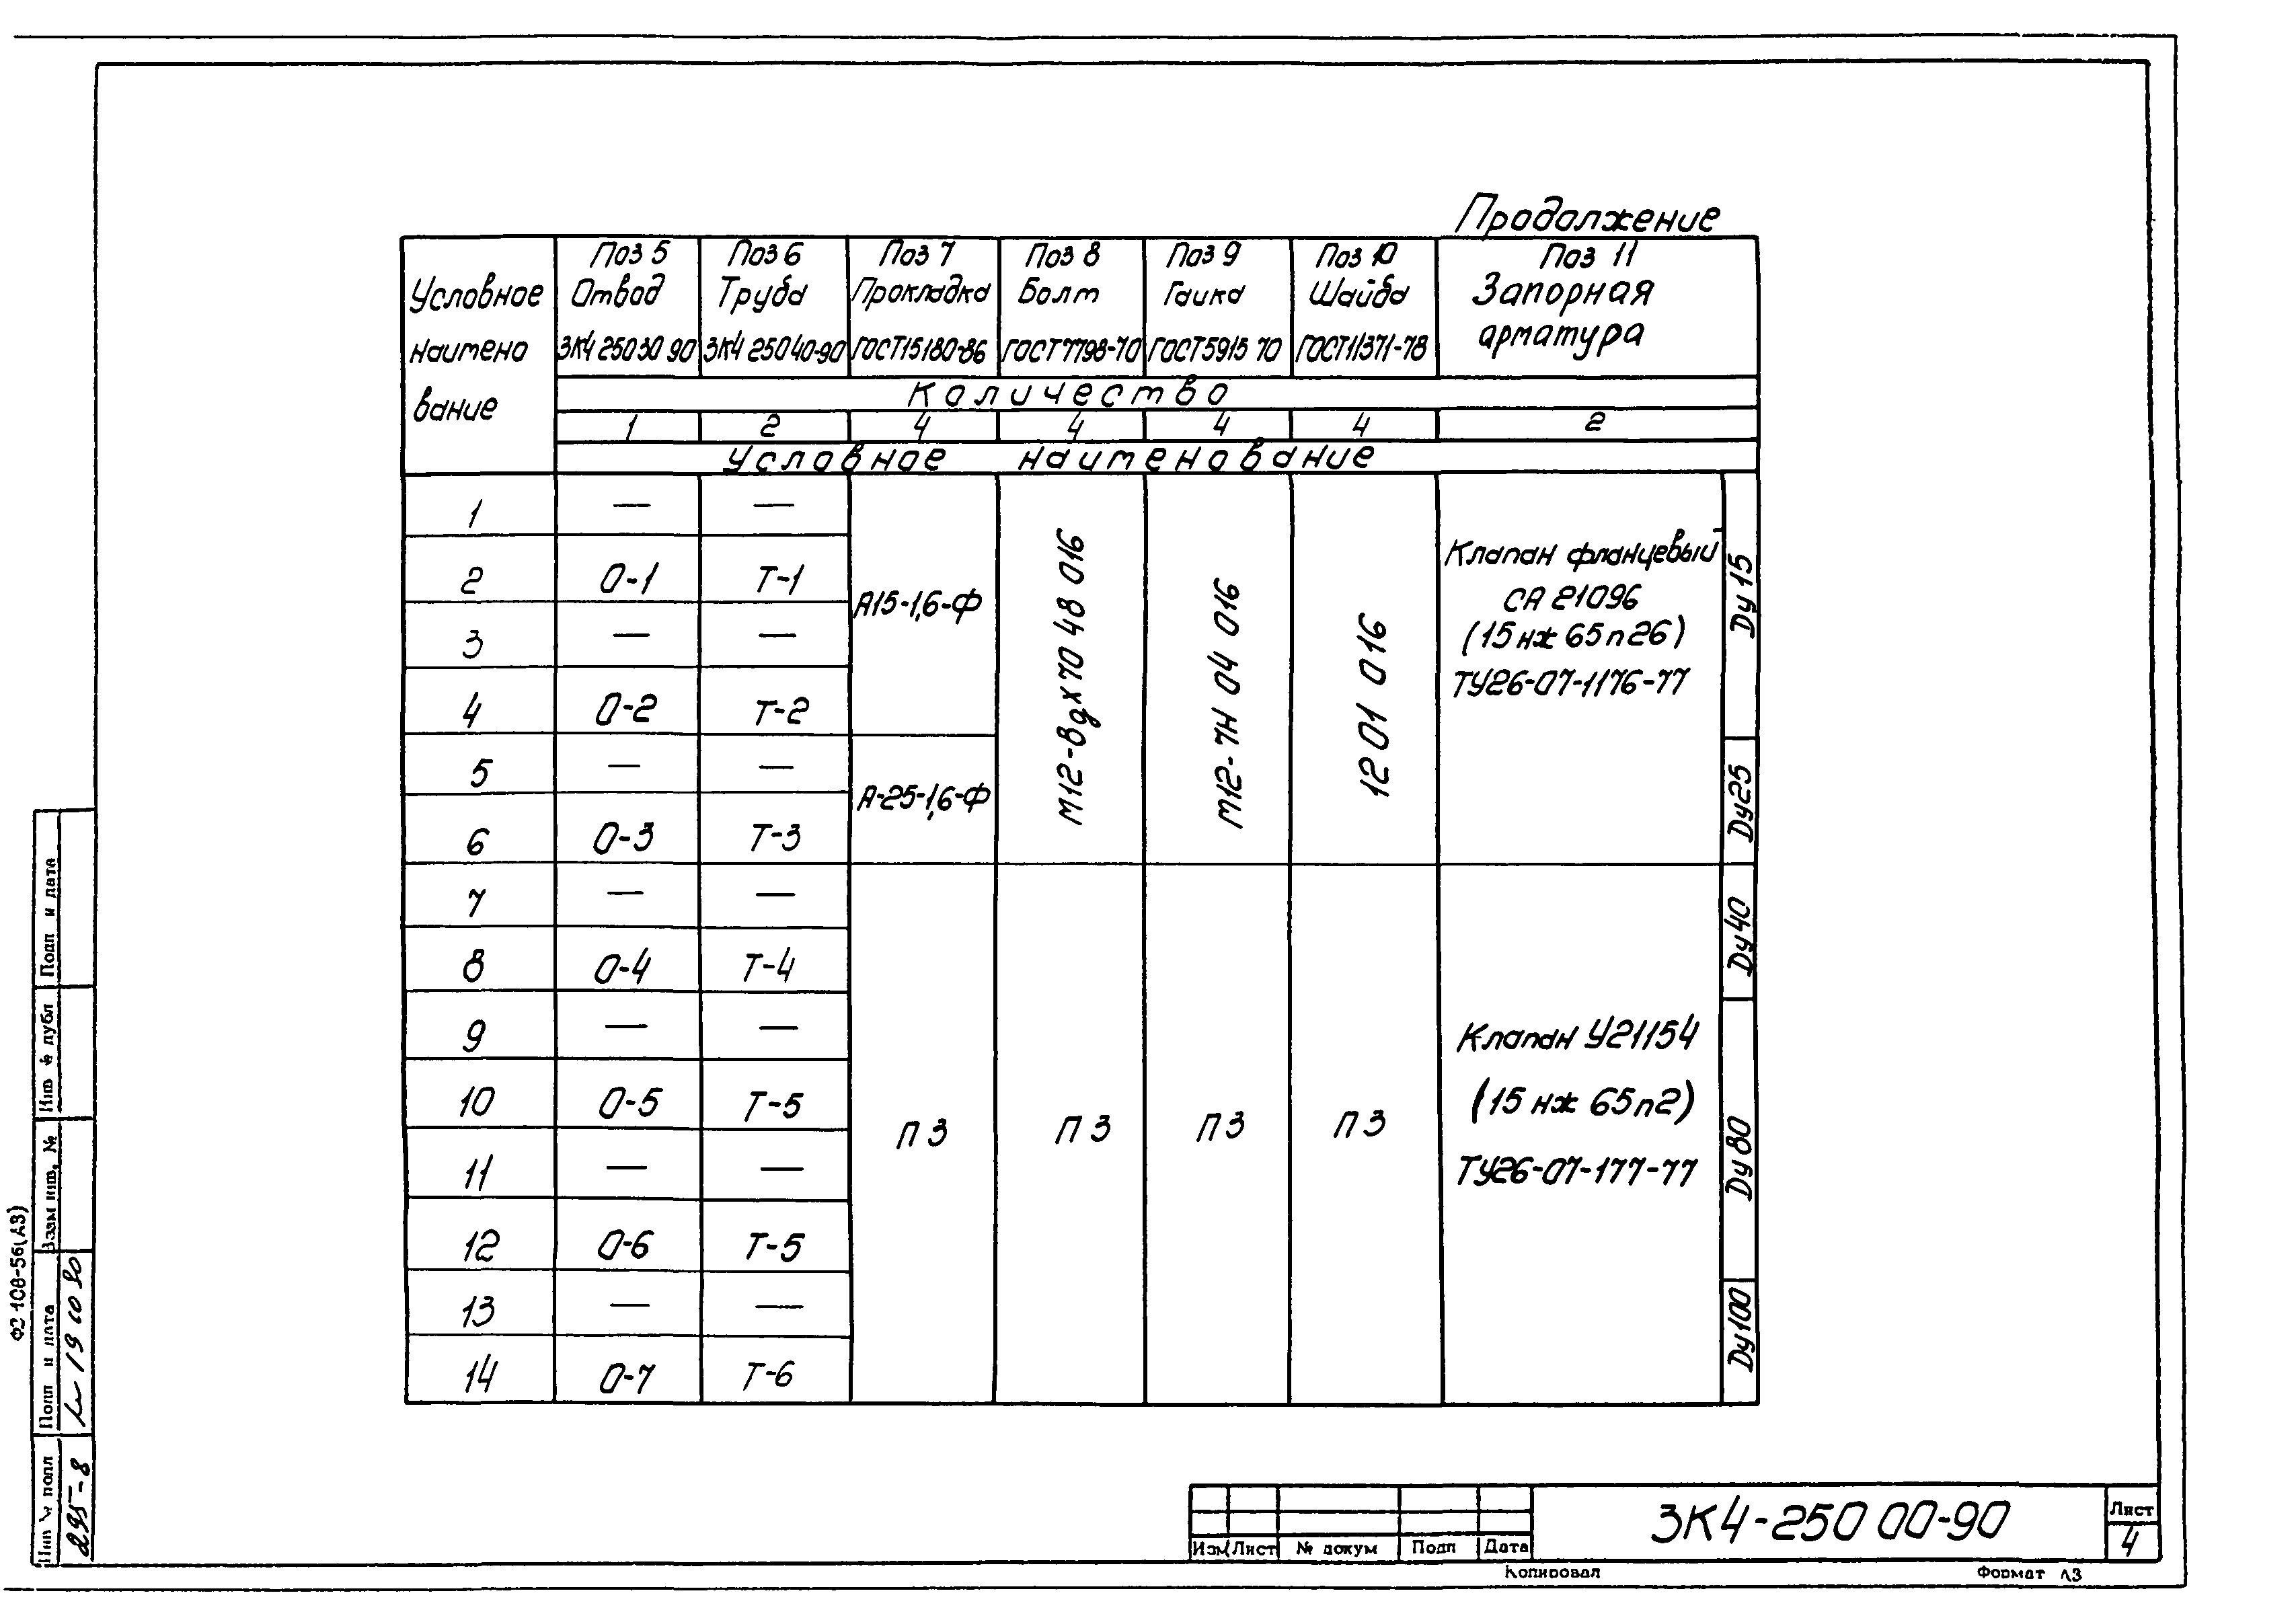 Продолжение
Условное наимено вание
Поз 5 Отвод ЗК4 250 30 90
Поз 6 Труба ЗК4 250 40-90
Поз 7 Прокладка ГОСТ15180-86
Поз 8 Болт ГОСТ7798-70
Поз 9 Гаика ГОСТ5915 70
Поз 10 Шайба ГОСТ11371-78
Поз 11 Запорная арматура
Количество
1 2 4 4 4 4 2
Условное наименование
1 — —
2 О-1 Т-1
3 — —
4 О-2 Т-2
5 — —
6 О-3 Т-3
7 — —
8 О-4 Т-4
9 — —
10 О-5 Т-5
11 — —
12 О-6 Т-5
13 — —
14 О-7 Т-6
А15-1,6-Ф
А-25-1,6-Ф
М12-8gх70 48 016
М12-7Н 04 016
12 01 016
Клапан фланцевый
СА 21096
(15 нж 65 п 26)
ТУ26-07-1176-77
Dу 15
Dу25
Dу40
Dу80
Dу100
П 3 П 3 П 3 П 3
Клапан У21154
(15 нж 65п2)
ТУ26-07-177-77
Изм Лист № докум Подп Дата
ЗК4-250 00-90
Лист
4
Копировал Формат А3
Подп и дата
Инв № дубл
Взам инв. №
Подп и дата
19 10 90
Инв № подл
295-8
Ф2 108-56(А3)